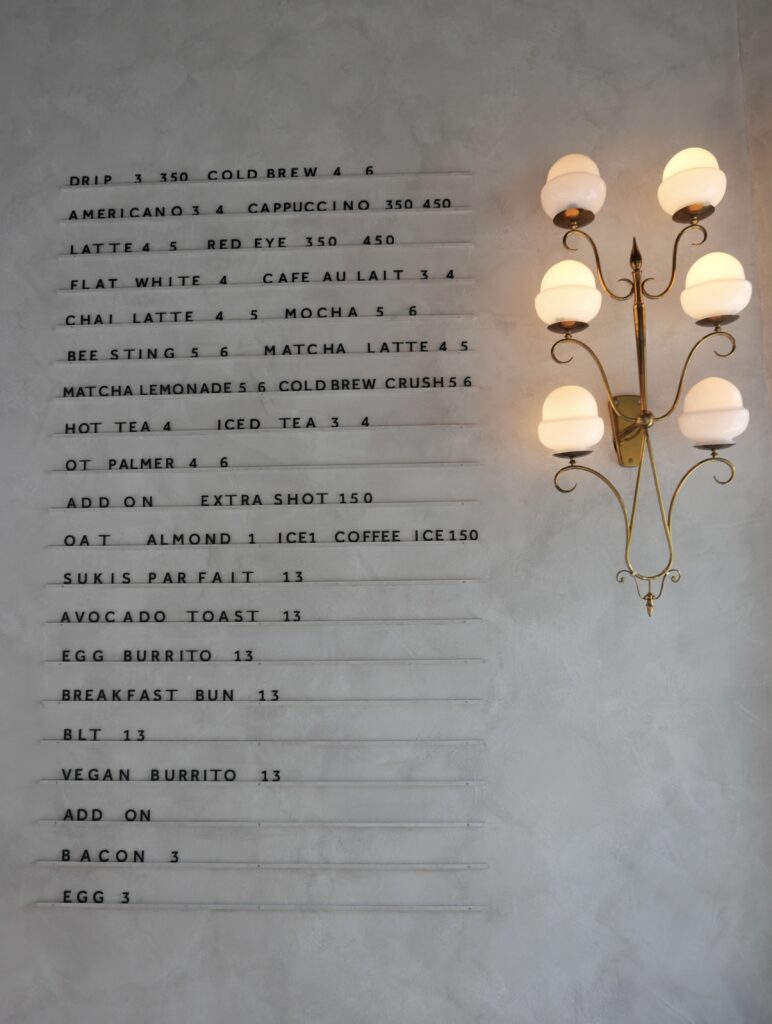 DRIP 3 350 COLD BREW 4 6
AMERICANO 3 4 CAPPUCCINO 350 450
LATTE 4 5 RED EYE 350 450
FLAT WHITE 4 CAFE AU LAIT 3 4
CHAI LATTE 4 5 MOCHA 5 6
BEE STING 5 6 MATCHA LATTE 4 5
MATCHA LEMONADE 5 6 COLD BREW CRUSH 5 6
HOT TEA 4 ICED TEA 3 4
OT PALMER 4 6
ADD ON EXTRA SHOT 150
OAT ALMOND 1 ICE1 COFFEE ICE 150
SUKIS PARFAIT 13
AVOCADO TOAST 13
EGG BURRITO 13
BREAKFAST BUN 13
BLT 13
VEGAN BURRITO 13
ADD ON
BACON 3
EGG 3